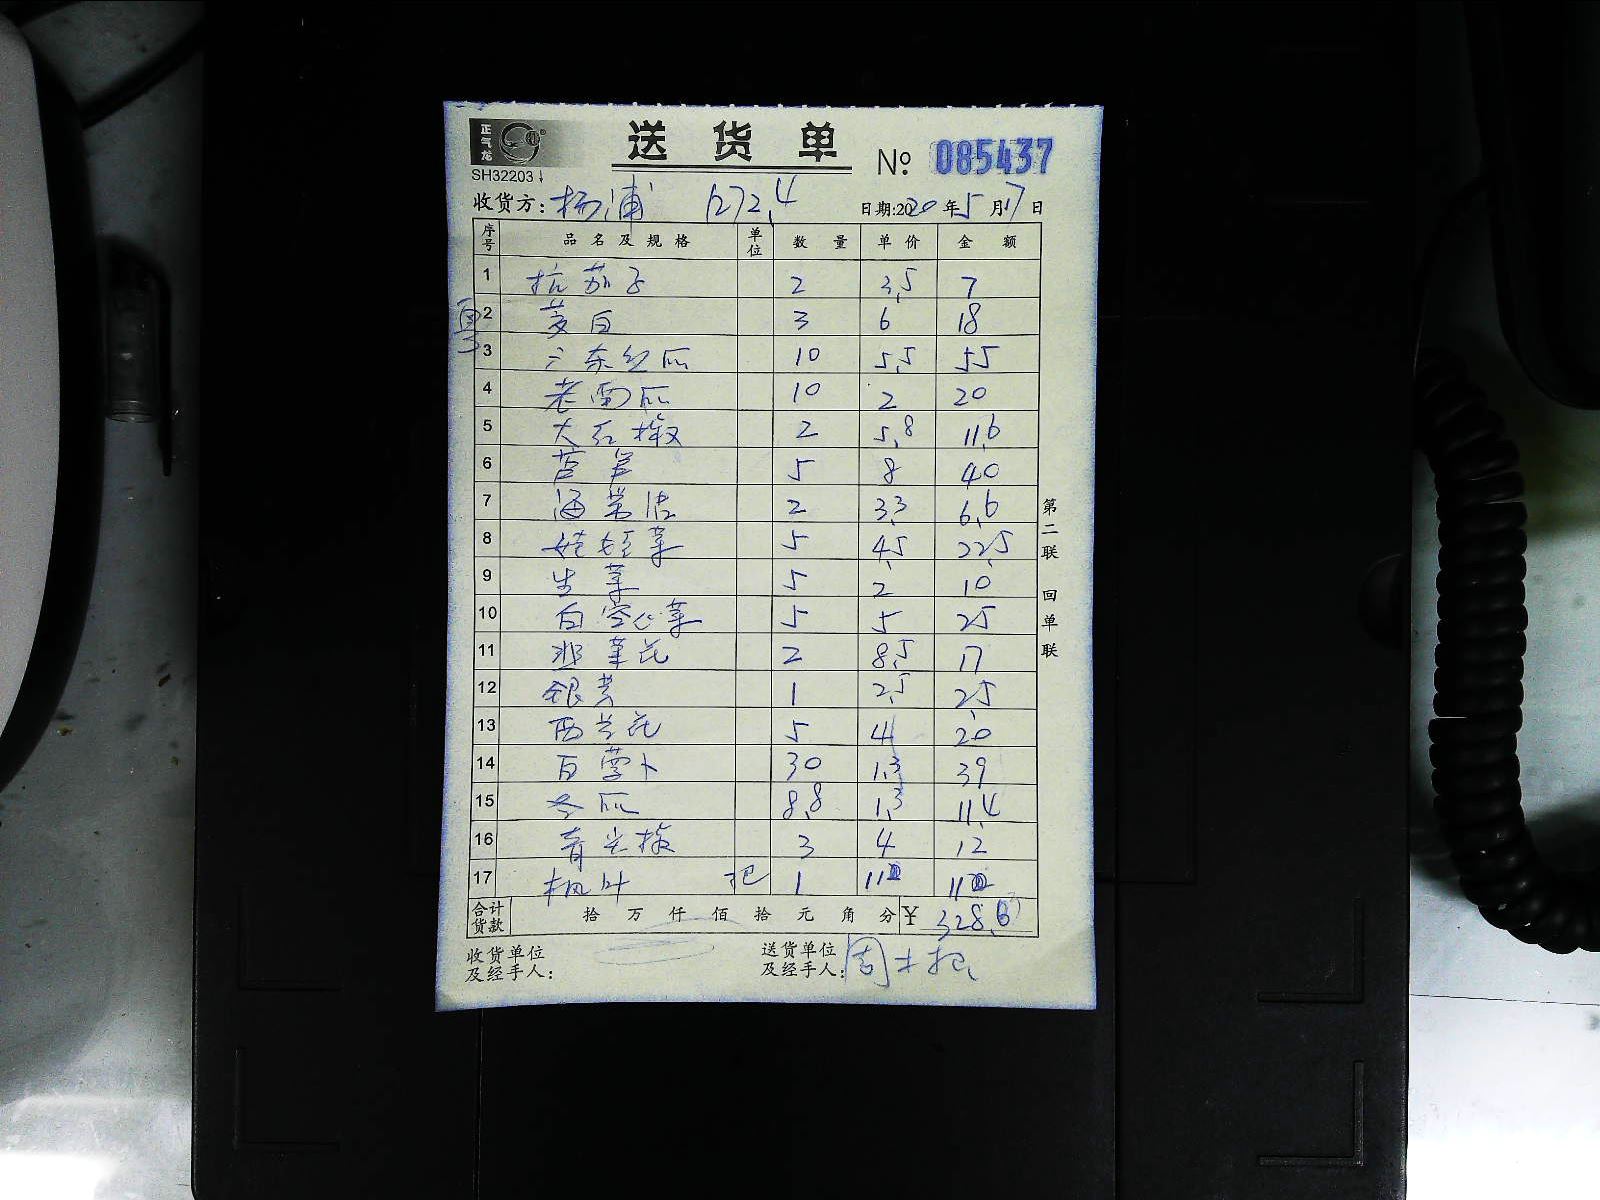 正气龙
送货单
SH32203
№ 085437
收货方: 杨浦 1272.4 日期:2020年5月17日
序号 品名及规格 单位 数量 单价 金额
1 杭茄子 2 3.5 7
2 茭白 3 6 18
3 广东丝瓜 10 5.5 55
4 老南瓜 10 2 20
5 大红椒 2 5.8 11.6
6 芦笋 5 8 40
7 海带结 2 3.3 6.6
8 娃娃菜 5 4.5 22.5
9 生菜 5 2 10
10 白空心菜 5 5 25
11 韭菜花 2 8.5 17
12 银芽 1 2.5 2.5
13 西兰花 5 4 20
14 白萝卜 30 1.3 39
15 冬瓜 8.8 1.3 11.4
16 青尖椒 3 4 12
17 枫叶 把 1 11 11
合计货款 拾万仟佰拾元角分 ¥ 328.6
收货单位及经手人: 送货单位及经手人: 周
第二联 回单联